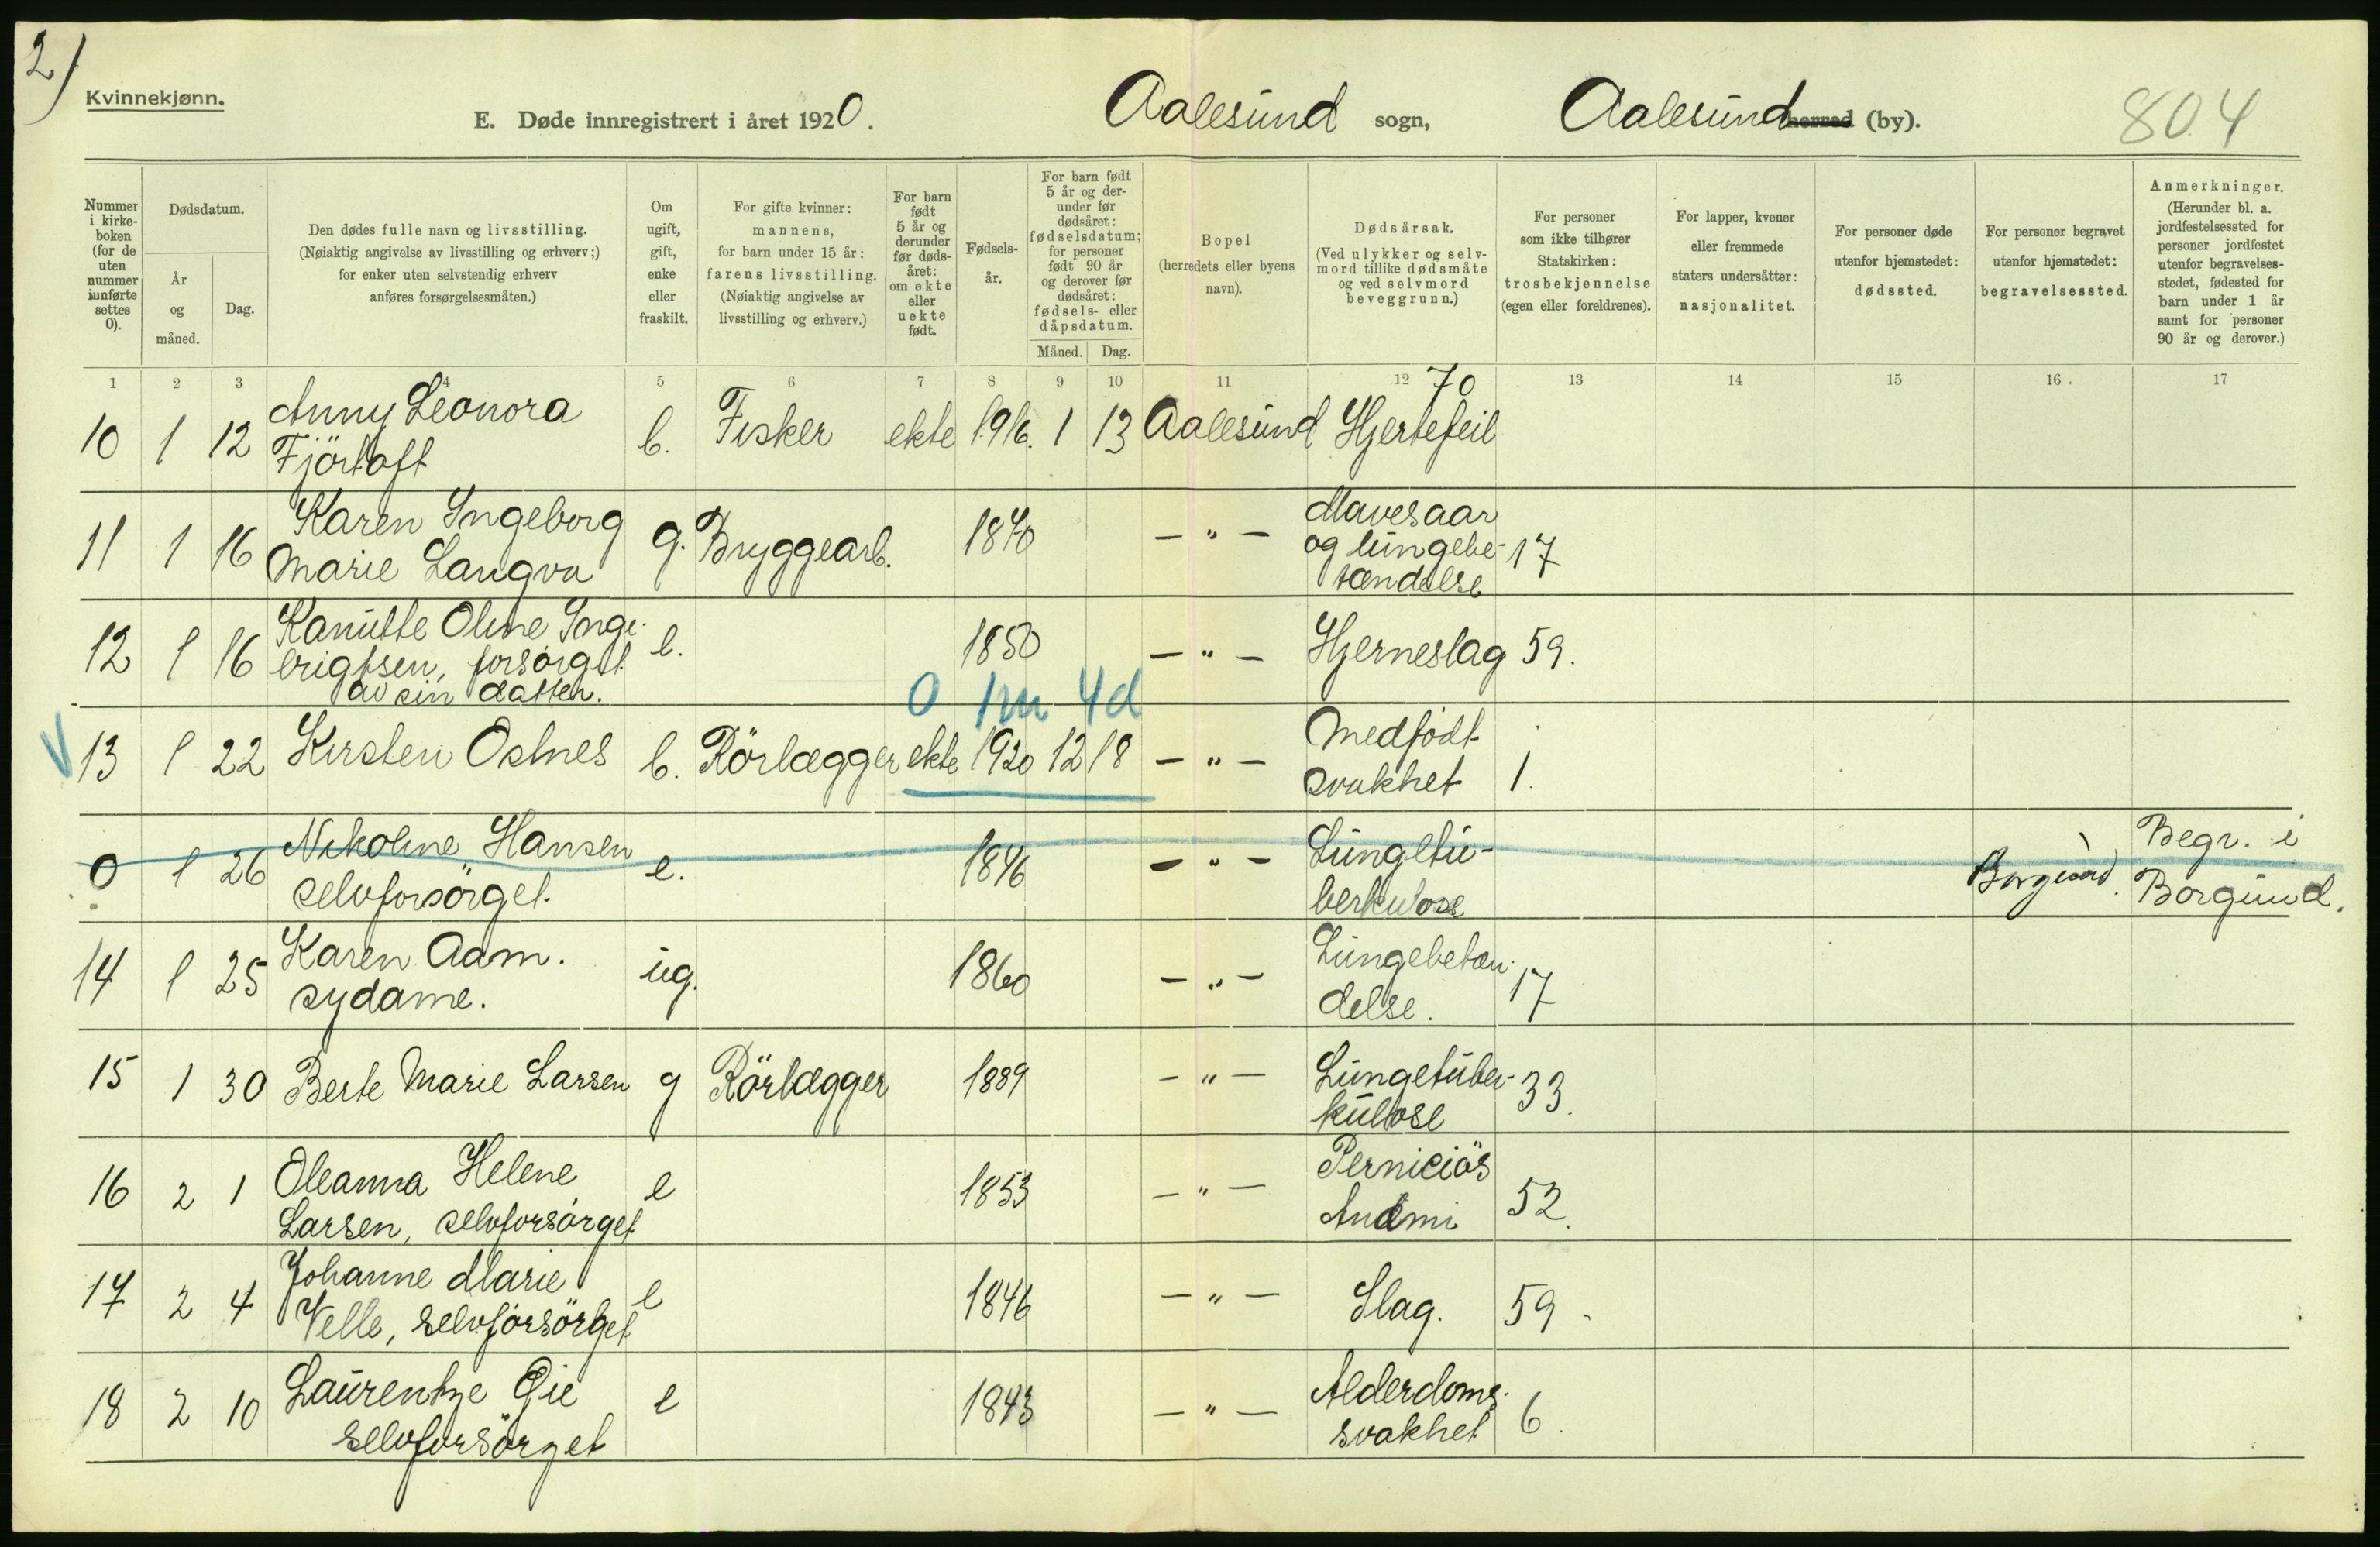 2)
Kvinnekjønn.
E. Døde innregistrert i året 1920. Aalesund sogn, Aalesund herred (by). 804
Nummer i kirkeboken (for de uten nummer innførte settes 0).
Dødsdatum.
År og måned.
Dag.
Den dødes fulle navn og livsstilling.
(Nøiaktig angivelse av livsstilling og erhverv;)
for enker uten selvstendig erhverv
anføres forsørgelsesmåten.)
Om ugift, gift, enke eller fraskilt.
For gifte kvinner:
mannens,
for barn under 15 år:
farens livsstilling.
(Nøiaktig angivelse av
livsstilling og erhverv.)
For barn født 5 år og derunder før dødsåret: om ekte eller uekte født.
Fødselsår.
For barn født 5 år og derunder før dødsåret: fødselsdatum; for personer født 90 år og derover før dødsåret: fødsels- eller dåpsdatum.
Måned. Dag.
Bopel
(herredets eller byens
navn).
Dødsårsak.
(Ved ulykker og selvmord tillike dødsmåte og ved selvmord beveggrunn.)
For personer
som ikke tilhører
Statskirken:
trosbekjennelse
(egen eller foreldrenes).
For lapper, kvener
eller fremmede
staters undersåtter:
nasjonalitet.
For personer døde
utenfor hjemstedet:
dødssted.
For personer begravet
utenfor hjemstedet:
begravelsessted.
Anmerkninger.
(Herunder bl. a.
jordfestelsessted for
personer jordfestet
utenfor begravelses-
stedet, fødested for
barn under 1 år
samt for personer
90 år og derover.)
1 2 3 4 5 6 7 8 9 10 11 12 13 14 15 16 17
70
10 1 12 Anny Leonora
Fjörtoft b. Fisker ekte 1916. 1 13 Aalesund Hjertefeil
11 1 16 Karen Ingeborg
Marie Langva g. Bryggearb. 1840 — " — Mavesaar
og lungebe-
tændelse 17
12 1 16 Kanutte Oline Inge-
brigtsen, forsörget
av sin datter. e. 1850 — " — Hjerneslag 59.
0 1m 4d
V 13 1 22 Kirsten Ostnes b. Rörlægger ekte 1920 12 18 — " — Medfödt
svakhet 1.
0 1 26 Nikoline Hansen
selvforsörget. e. 1846 — " — Lungetu-
berkulose Borgund. Begr. i
Borgund.
14 1 25 Karen Aam.
sydame. ug. 1860 — " — Lungebetæn-
delse. 17
15 1 30 Berte Marie Larsen g Rörlægger 1889 — " — Lungetuber-
kulose 33.
16 2 1 Oleanna Helene
Larsen, selvforsörget e 1853 — " — Perniciös
Anæmi 52.
17 2 4 Johanne Marie
Velle, selvforsörget e 1846 — " — Slag. 59
18 2 10 Laurentze Gie
selvforsörget e 1843 — " — Alderdoms-
svakhet 6.